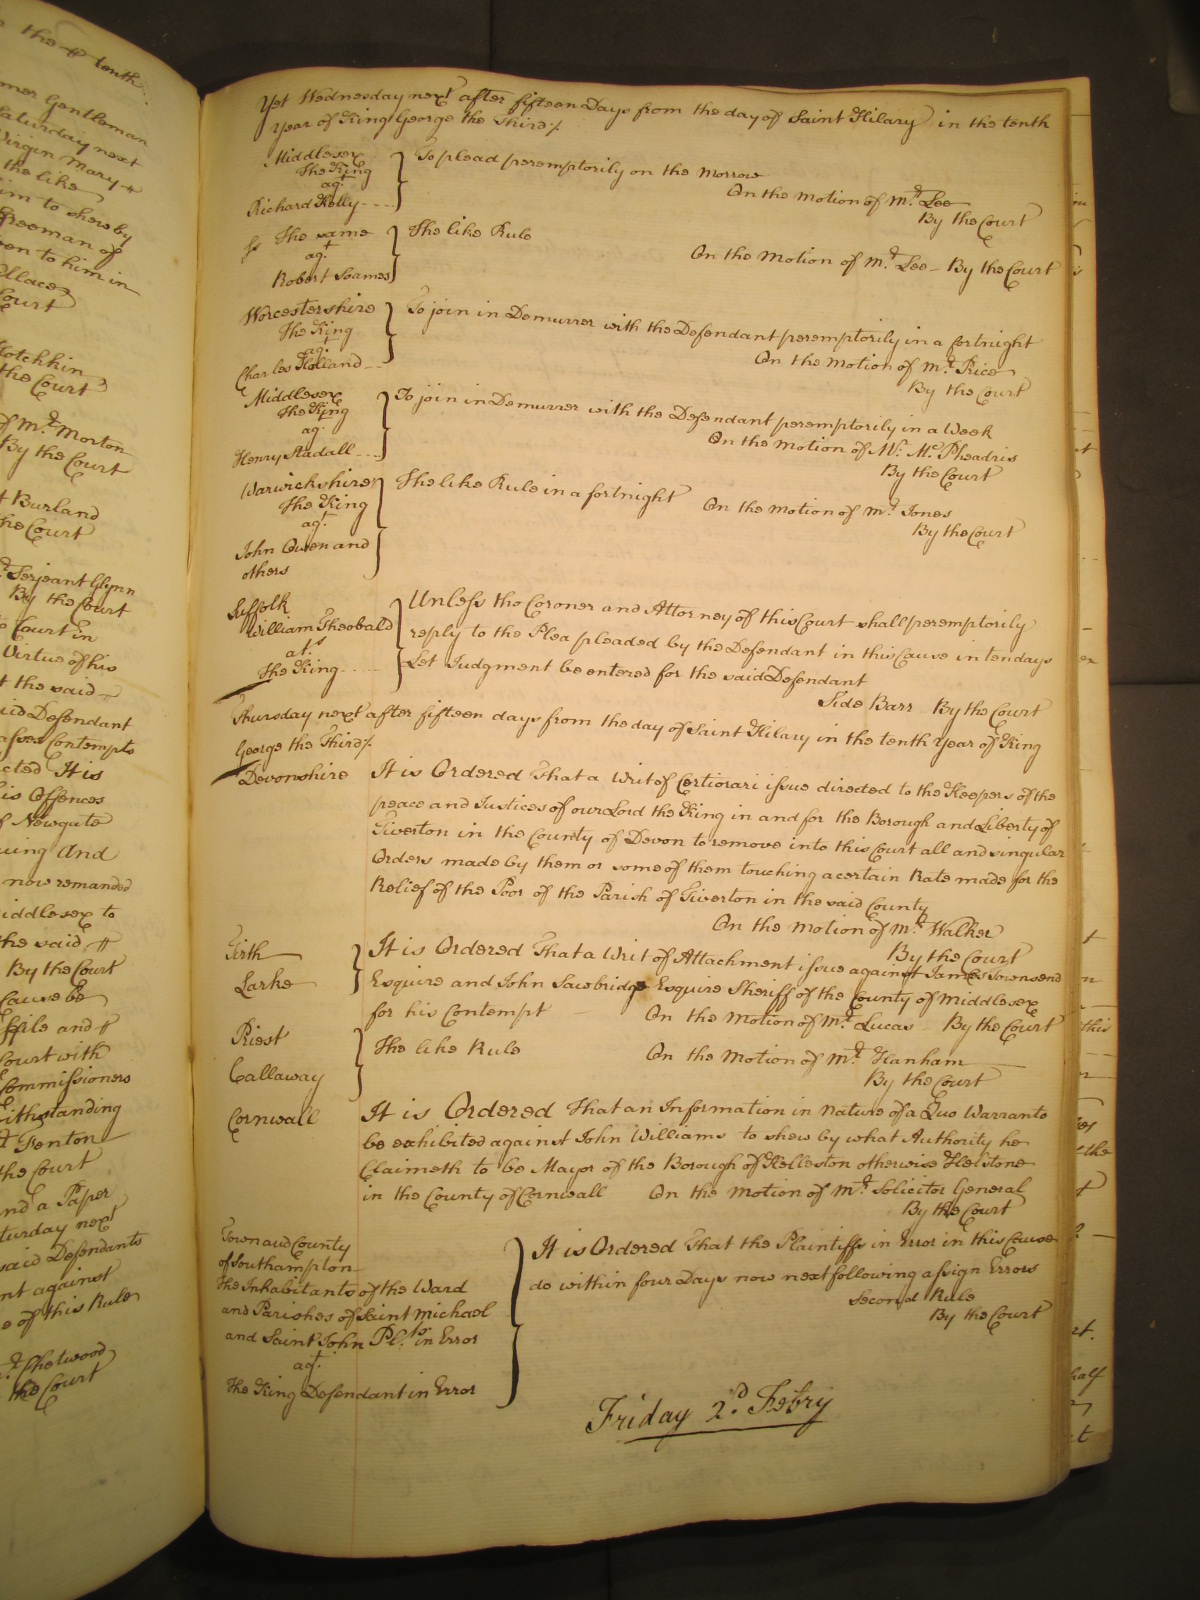 the # tenth
mer Gentleman
Saturday next
Virgin Mary +
the like
im to shew by
Freeman of
een to him in
Wallace
Court
Hotchkin
the Court
of Mr. Morton
By the Court
t Burland
he Court
Serjeant Glynn
By the Court
Court in
Virtue of his
t the said
aid Defendant
Contempts
cted It is
is Offences
f Newgate
uing And
now remanded
iddlesex to
the said #
By the Court
Cause be
ffile and #
Court with
Commissioners
ithstanding
Fenton
the Court
nd a Paper
turday next
said Defendants
nt against
e of this Rule
Chetwood
the Court
Yet Wednesday next after fifteen Days from the day of Saint Hilary in the tenth
Year of King George the Third /.
Middlesex
The King
agt.
Richard Kelly
To plead peremptorily on the Morrow
On the Motion of Mr. Lee
By the Court
ss The same
agt.
Robert Soames
The like Rule
On the Motion of Mr. Lee - By the Court
Worcestershire
The King
agt.
Charles Holland
To join in Demurrer with the Defendant peremptorily in a fortnight
On the Motion of Mr. Price
By the Court
Middlesex
The King
agt.
Henry Stadall
To join in Demurrer with the Defendant peremptorily in a Week
On the Motion of Mr. Mc.Pheadris
By the Court
Warwickshire
The King
agt.
John Owen and
others
The like Rule in a fortnight
On the Motion of Mr. Jones
By the Court
Suffolk
William Theobald
ats.
The King
Unless the Coroner and Attorney of this Court shall peremptorily
reply to the Plea pleaded by the Defendant in this Cause in ten days
Let Judgment be entered for the said Defendant
Side Barr By the Court
Thursday next after fifteen days from the day of Saint Hilary in the tenth Year of King
George the Third /.
Devonshire It is Ordered That a Writ of Certiorari issue directed to the Keepers of the
peace and Justices of our Lord the King in and for the Borough and Liberty of
Tiverton in the County of Devon to remove into this Court all and singular
Orders made by them or some of them touching a certain Rate made for the
Relief of the Poor of the Parish of Tiverton in the said County
On the Motion of Mr. Walker
By the Court
Firth
Larke
It is Ordered That a Writ of Attachment issue against James Townsend
Esquire and John Sawbridge Esquire Sheriff of the County of Middlesex
for his Contempt - On the Motion of Mr. Lucas By the Court
Priest
Callaway
The like Rule On the Motion of Mr. Hanham
By the Court
Cornwall It is Ordered That an Information in Nature of a Quo Warranto
be exhibited against John Williams to shew by what Authority he
Claimeth to be Mayor of the Borough of Helleston otherwise Helstone
in the County of Cornwall On the Motion of Mr. Solicitor General
By the Court
Town and County
of Southampton
The Inhabitants of the Ward
and Parishes of Saint Michael
and Saint John Pl.ts in Error
agt.
The King Defendant in Error
It is Ordered That the Plaintiffs in Error in this Cause
do within four Days now next following assign Errors
Second Rule
By the Court
Friday 2d. Febry